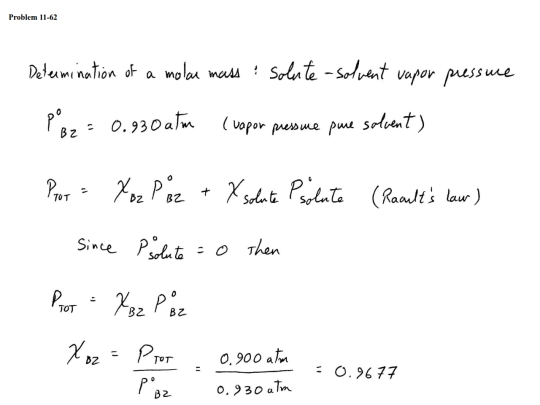 Problem 11-62
Determination of a molar mass : Solute - Solvent vapor pressure
P°BZ = 0.930 atm (vapor pressure pure solvent)
PTOT = χBZ P°BZ + χsolute P°solute (Raoult's law)
Since P°solute = 0 then
PTOT = χBZ P°BZ
χBZ = PTOT / P°BZ = 0.900 atm / 0.930 atm = 0.9677